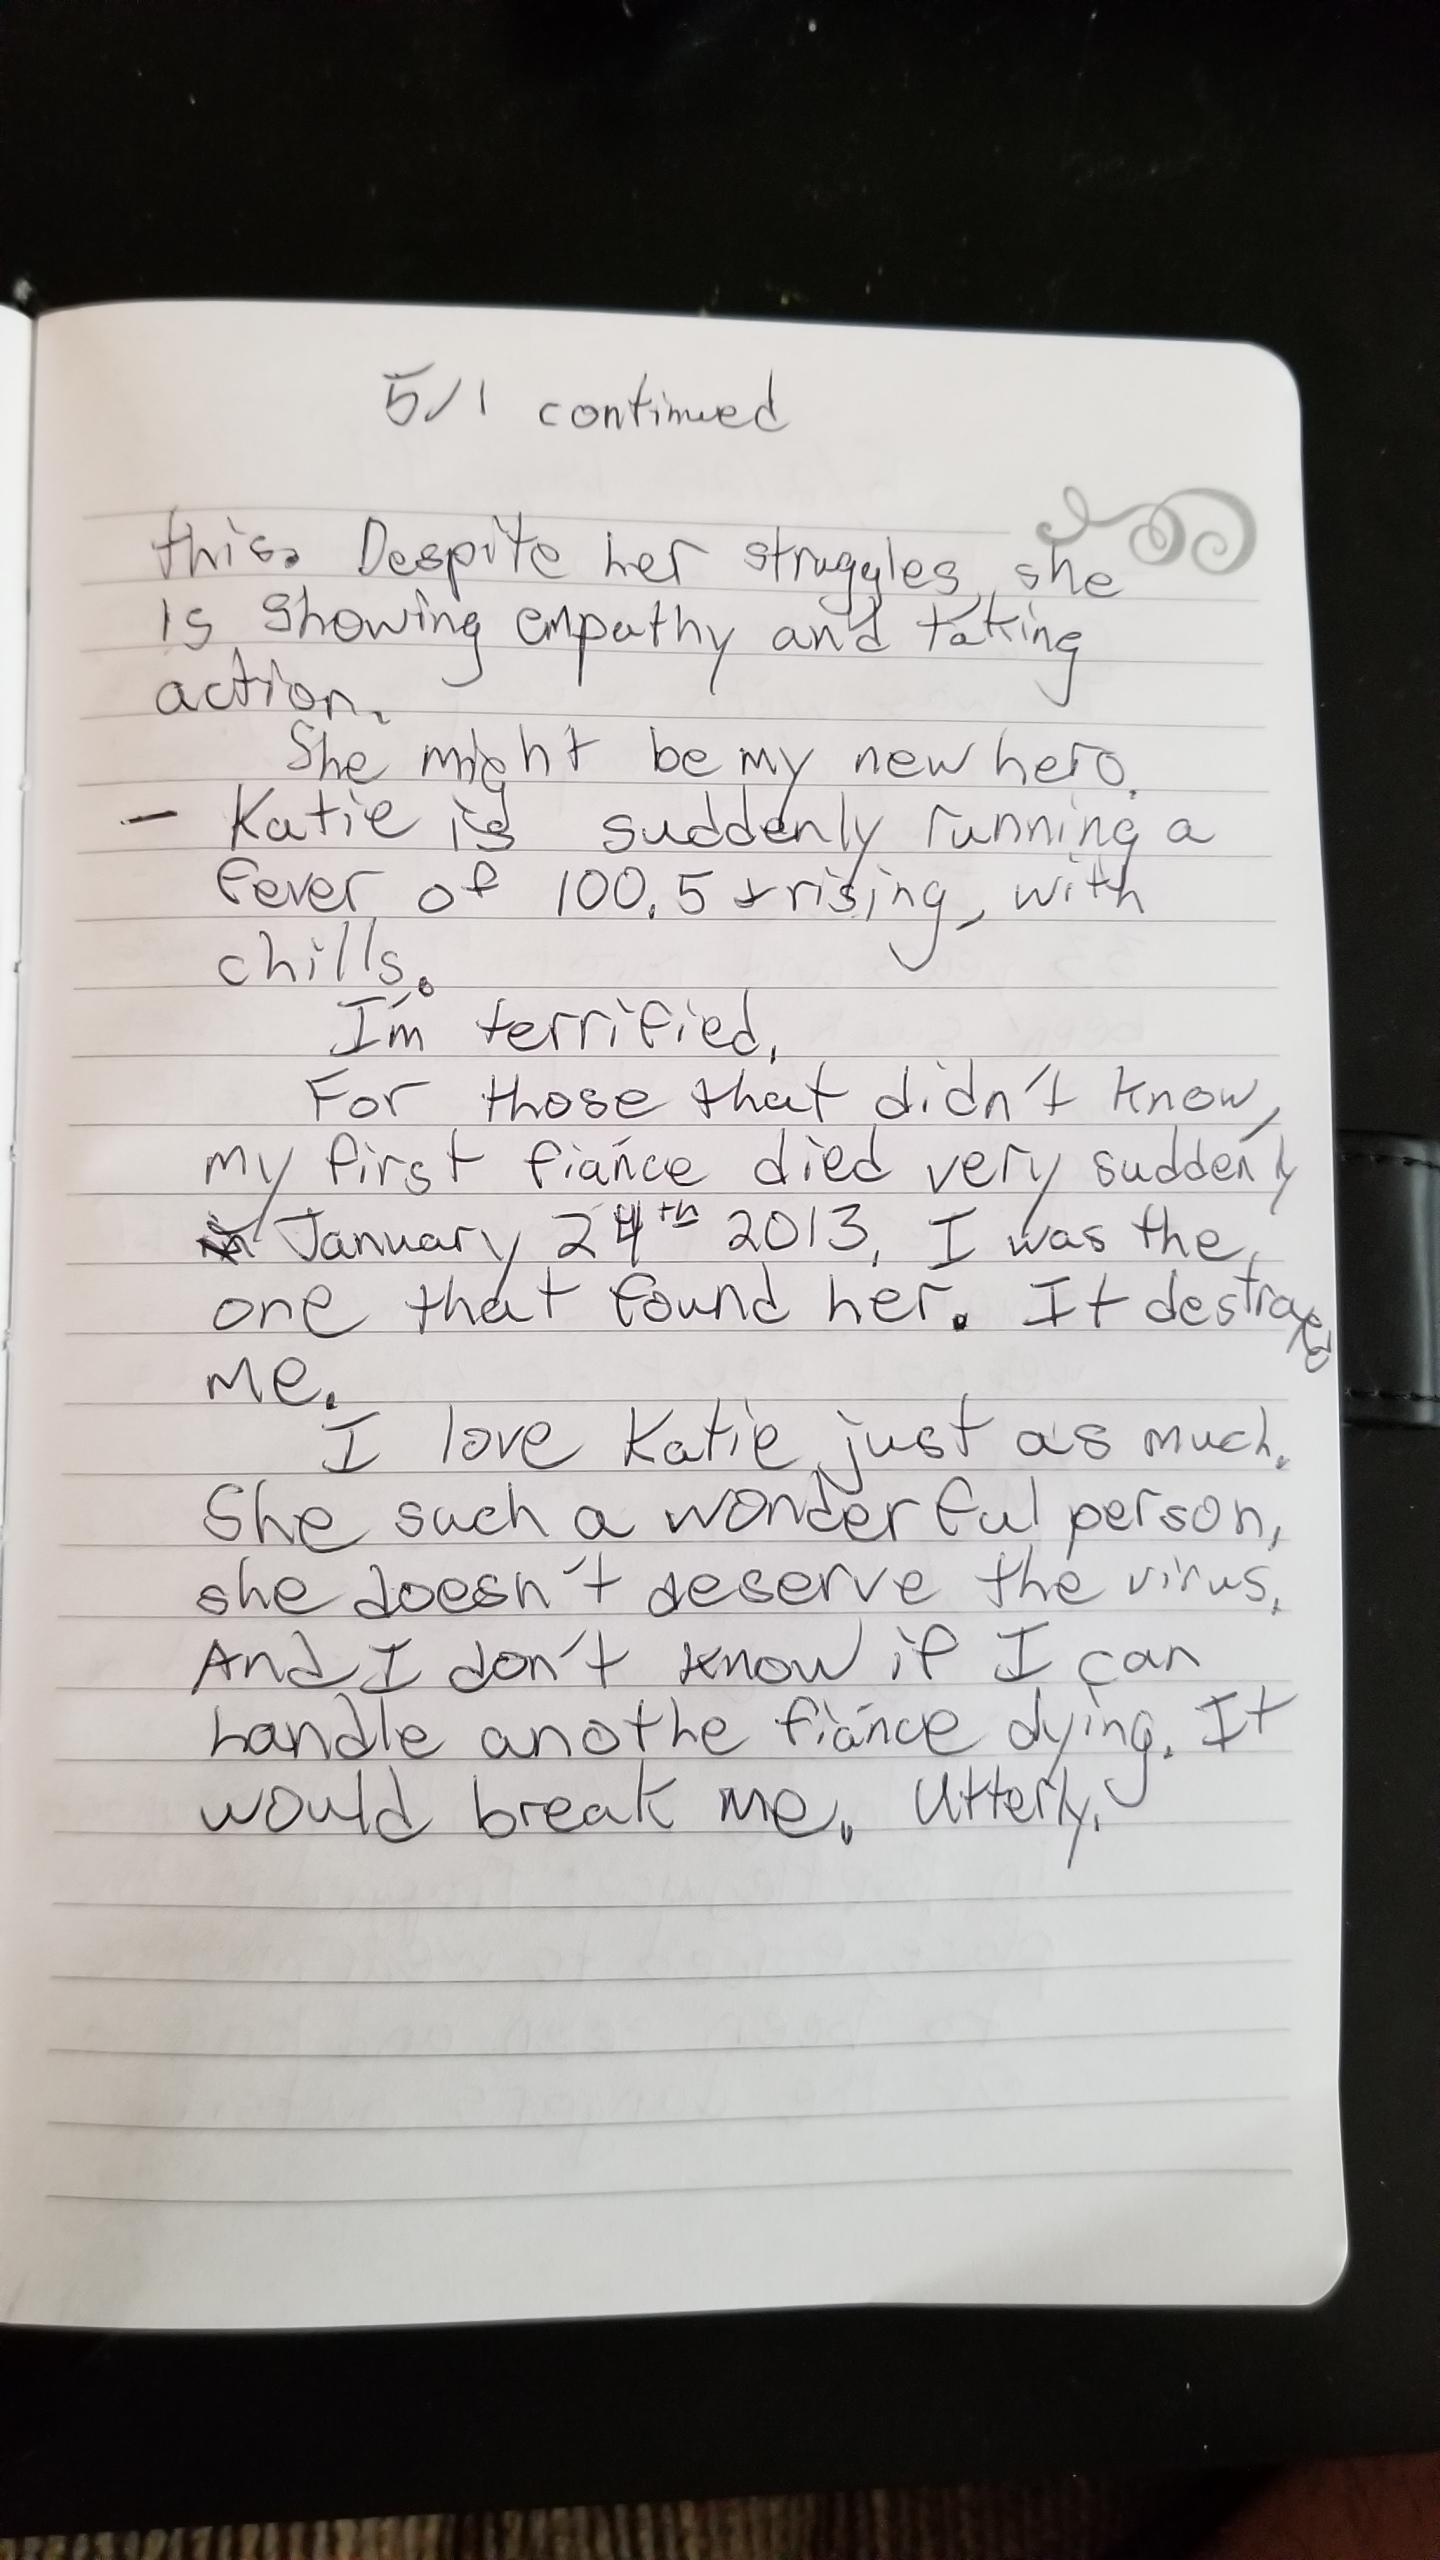 5/1 continued
this. Despite her struggles, she
is showing empathy and taking
action.
She might be my new hero.
- Katie is suddenly running a
fever of 100.5 & rising, with
chills.
I'm terrified.
For those that didn't know,
my first fiánce died very suddenly
January 24th 2013. I was the
one that found her. It destroyed
me.
I love Katie just as much.
She such a wonderful person,
she doesn't deserve the virus.
And I don't know if I can
handle anothe fiánce dying. It
would break me. Utterly.